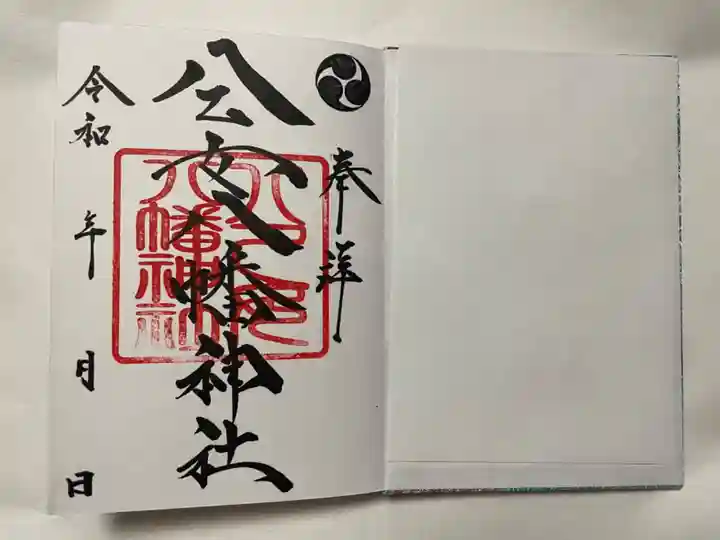 奉拝
八幡神社
令和 年 月 日
八幡神社